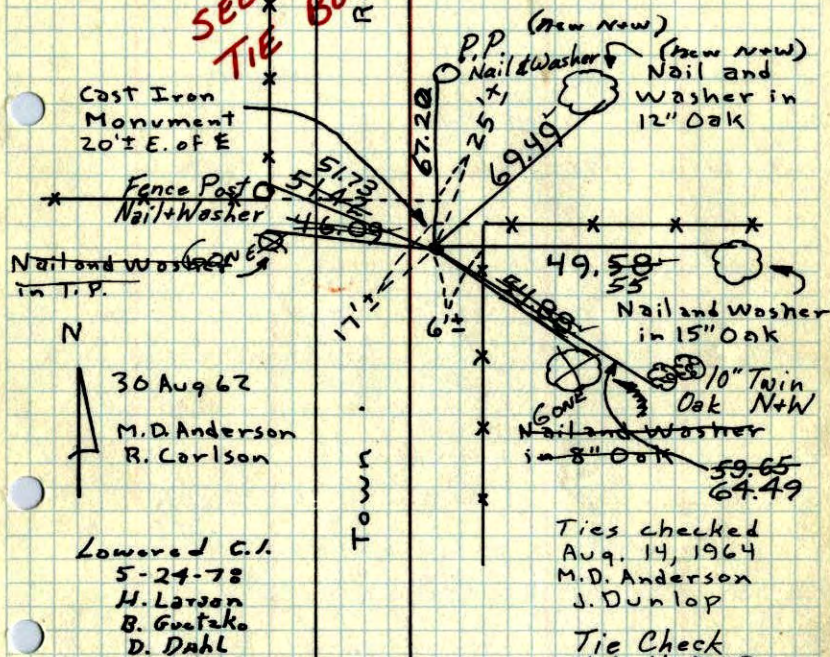 SEE
TIE B
R
(new N+W)
P.P.
Nail & Washer
(new N+W)
Nail and
Washer in
12" Oak
Cast Iron
Monument
20'± E. of ℄
67.20
25'±
69.49
51.73
51.42
Fence Post
Nail+Washer
46.09
GONE
Nail and Washer
in T.P.
49.58
55
54.88
Nail and Washer
in 15" Oak
17'±
6'±
N
30 Aug 62
M.D. Anderson
R. Carlson
10" Twin
Oak N+W
GONE
Nail and Washer
in 8" Oak
59.65
64.49
Town
Lowered C.I.
5-24-78
H. Larson
B. Guetzko
D. Dahl
Ties checked
Aug. 14, 1964
M.D. Anderson
J. Dunlop
Tie Check